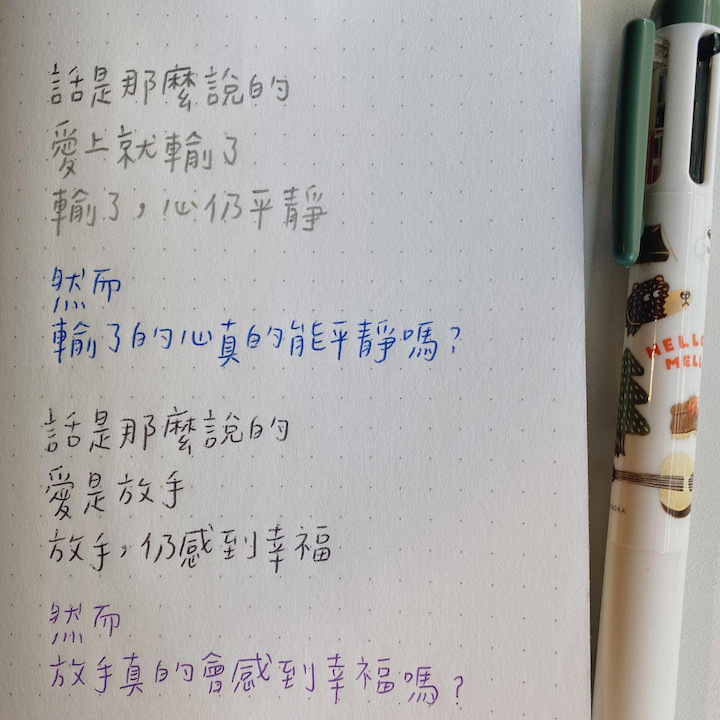 話是那麼說的
愛上就輸了
輸了，心仍平靜
然而
輸了的心真的能平靜嗎？
話是那麼說的
愛是放手
放手，仍感到幸福
然而
放手真的會感到幸福嗎？
HELLO
MELL